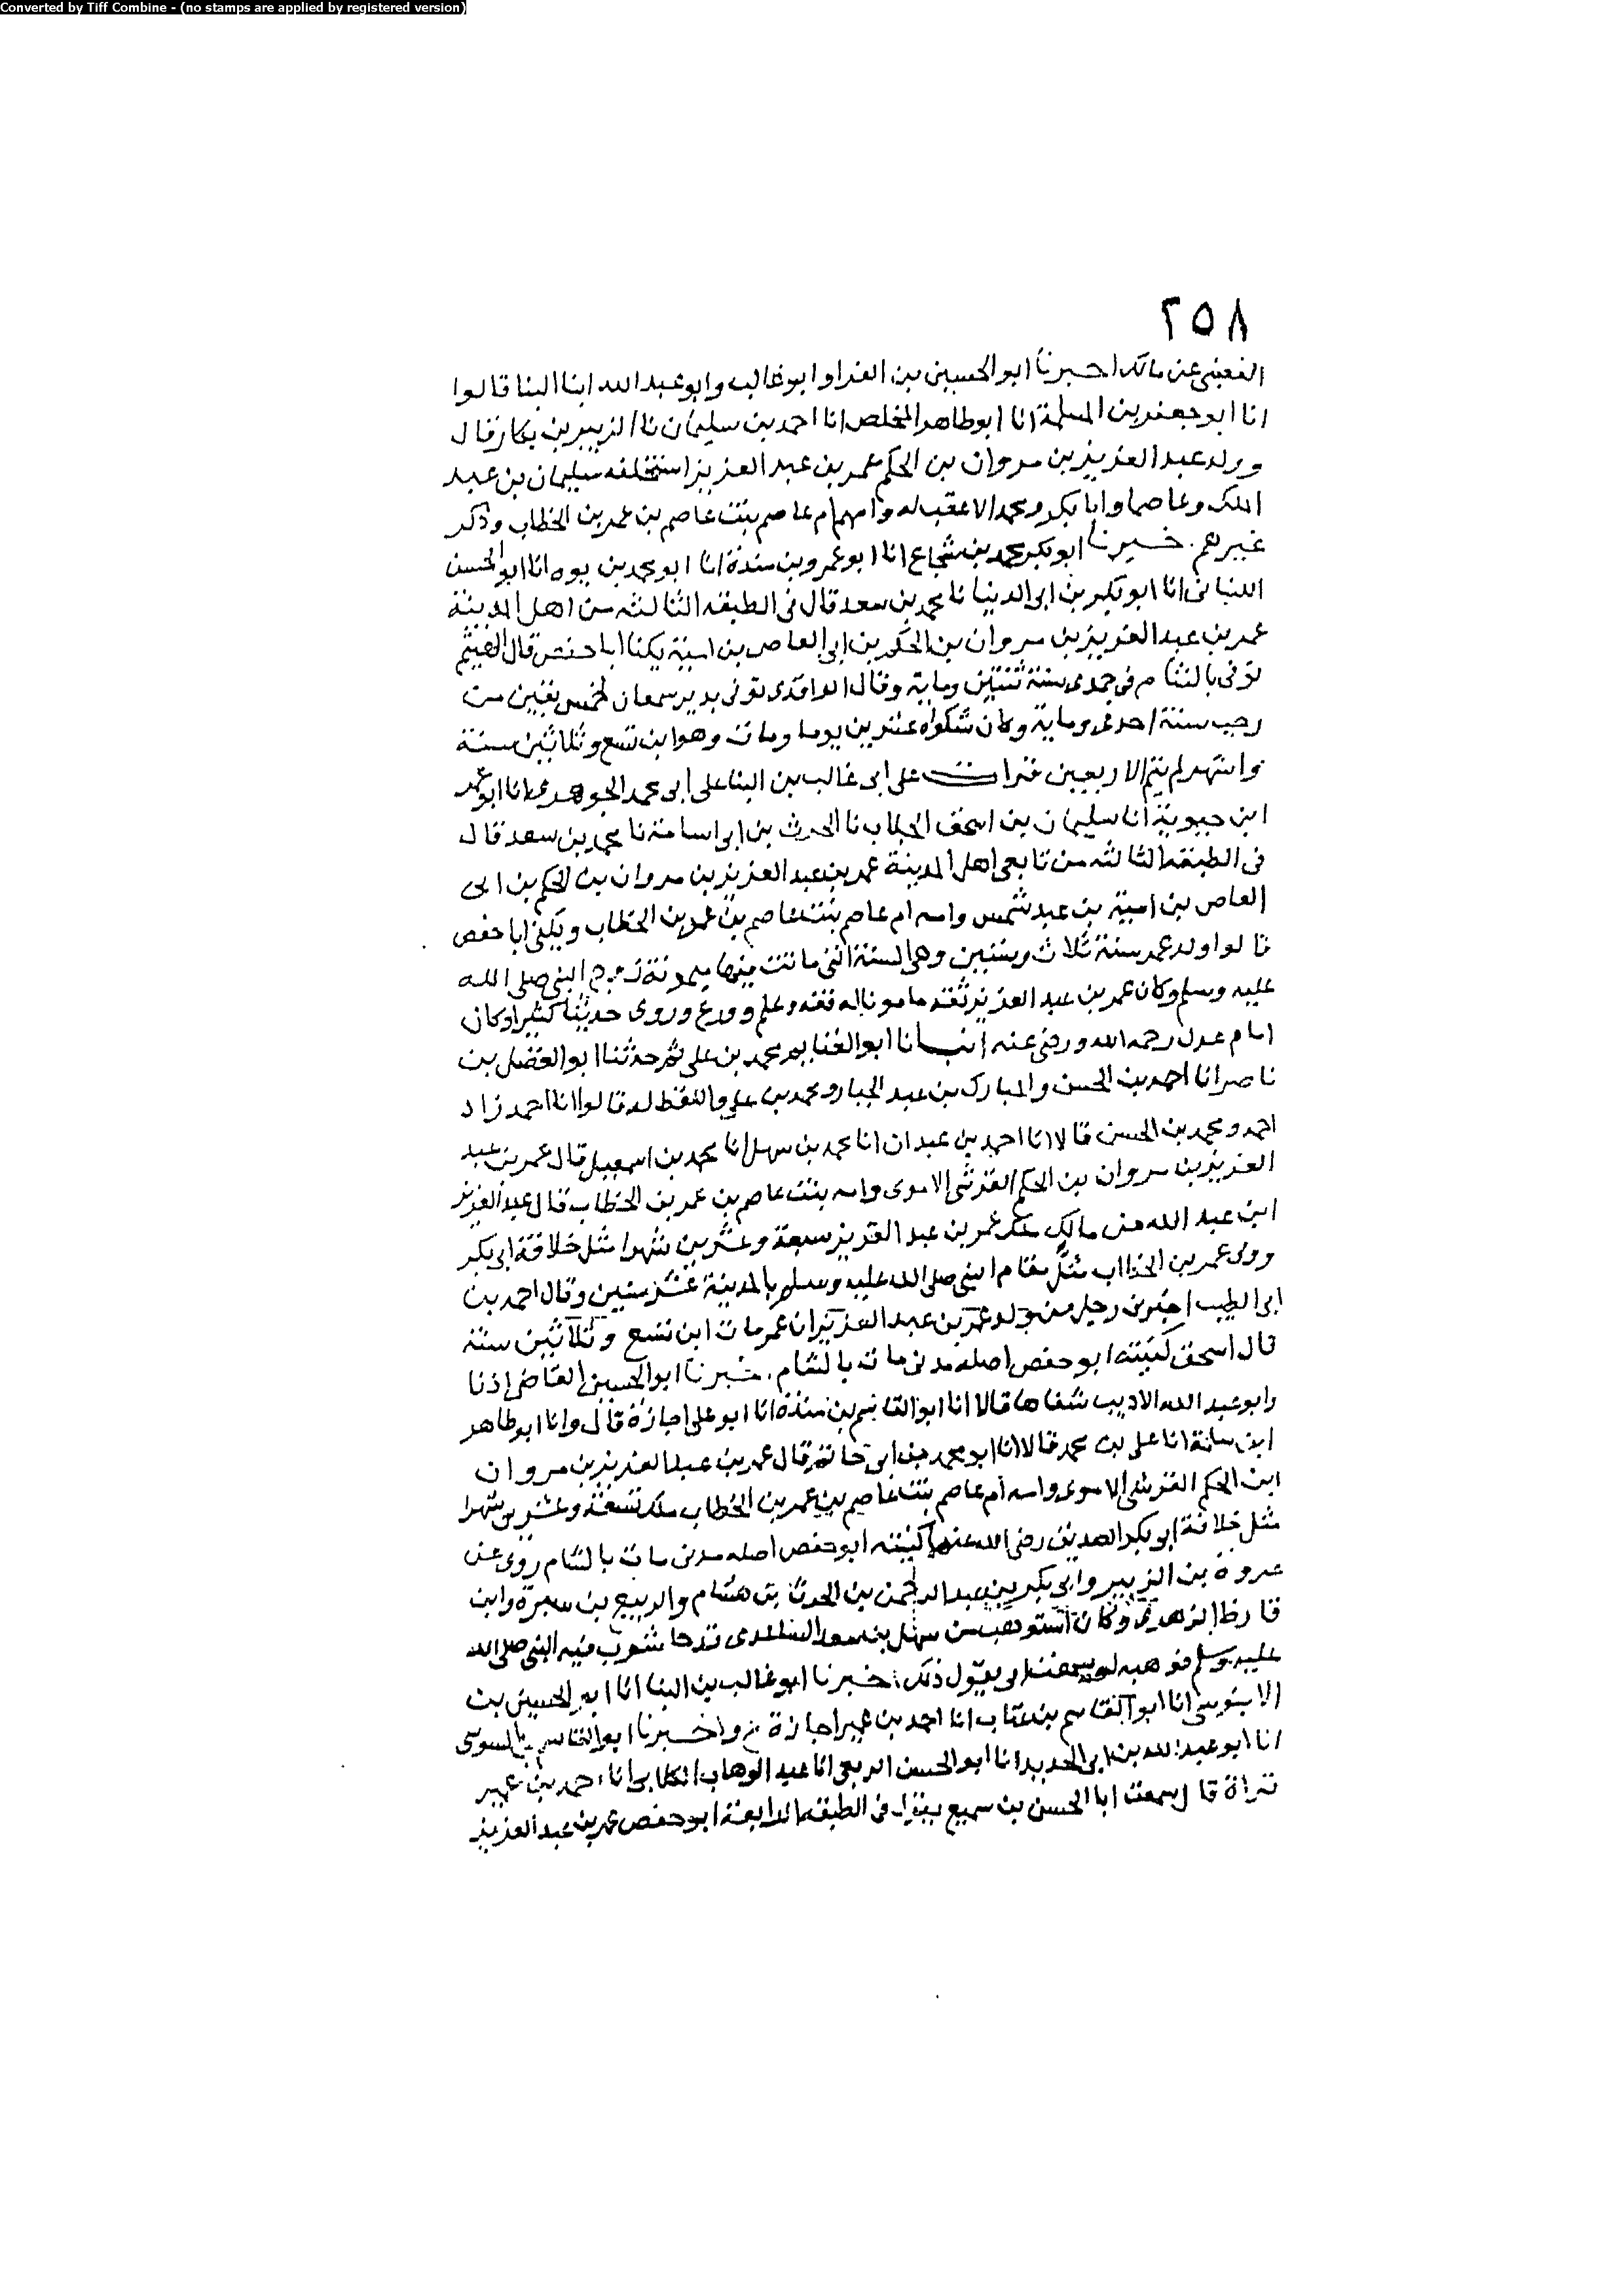 Converted by Tiff Combine - (no stamps are applied by registered version)
٢٥٨
القعنبى عن مالك اخبرنا ابو الحسين بن الفرا وابو غالب وابو عبد الله ابنا البنا قالوا
انا ابو جعفر بن المسلمة انا ابو طاهر المخلص انا احمد بن سليمان نا الزبير بن بكار قال
وولد عبد العزيز بن مروان بن الحكم عمر بن عبد العزيز استخلفه سليمان بن عبد
الملك وعاصما وابا بكر ومحمدا لا عقب له وامهم ام عاصم بنت عاصم بن عمر بن الخطاب وذكر
غيرهم . خبرنا ابو بكر محمد بن شجاع انا ابو عمرو بن مندة انا ابو محمد بن يوه انا ابو الحسن
اللنبانى انا ابو بكر بن ابى الدنيا نا محمد بن سعد قال فى الطبقه الثالثه من اهل المدينة
عمر بن عبد العزيز بن مروان بن الحكم بن ابى العاص بن امية يكنا ابا حفص قال الهيثم
توفى بالشام فى جمدى سنة ثنتين وماية وقال الواقدى توفى بدير سمعان لخمس بقين من
رجب سنة احدى وماية وكان شكواه عشرين يوما ومات وهو ابن تسع وثلاثين سنة
واشهر لم يتم الاربعين قرات على ابى غالب بن البنا على ابى محمد الجوهرى انا ابو عمر
ابن حيوية انا سليمان بن اسحق الجلاب نا الحرث بن ابى اسامة نا محمد بن سعد قال
فى الطبقه الثالثه من تابعى اهل المدينة عمر بن عبد العزيز بن مروان بن الحكم بن ابى
العاص بن امية بن عبد شمس وامه ام عاصم بنت عاصم بن عمر بن الخطاب ويكنى ابا حفص
قالوا ولد عمر سنة ثلاث وستين وهى السنة التى ماتت فيها ميمونة زوج النبى صلى الله
عليه وسلم وكان عمر بن عبد العزيز ثقة مامونا له فقه وعلم وورع وروى حديثا كثيرا وكان
امام عدل رحمه الله ورضى عنه انبانا ابو الغنايم محمد بن على ثم حدثنا ابو الفضل بن
ناصر انا احمد بن الحسن والمبارك بن عبد الجبار ومحمد بن على واللفظ له قالوا انا احمد زاد
احمد ومحمد بن الحسن قالا انا احمد بن عبدان انا محمد بن سهل انا محمد بن اسمعيل قال عمر بن عبد
العزيز بن مروان بن الحكم القرشى الاموى وامه بنت عاصم بن عمر بن الخطاب قال عبد العزيز
ابن عبد الله عن مالك ملك عمر بن عبد العزيز سبعة وعشرين شهرا مثل خلافة ابى بكر
وولى عمر بن الخطاب مثل مقام النبى صلى الله عليه وسلم بالمدينة عشر سنين وقال احمد بن
ابى الطيب اخبرنى رجل من ولد عمر بن عبد العزيز ان عمر مات ابن تسع وثلاثين سنة
قال اسحق كنيته ابو حفص اصله مدنى مات بالشام . خبرنا ابو الحسين القاضى اذنا
وابو عبد الله الاديب شفاها قالا انا ابو القاسم بن مندة انا ابو على اجازة قال وانا ابو طاهر
ابن سلمة انا على بن محمد قالا انا ابو محمد بن ابى حاتم قال عمر بن عبد العزيز بن مروان
ابن الحكم القرشى الاموى وامه ام عاصم بنت عاصم بن عمر بن الخطاب ملك تسعة وعشرين شهرا
مثل خلافة ابو بكر الصديق رضى الله عنهما كنيته ابو حفص اصله مدنى مات بالشام روى عن
عروة بن الزبير وابى بكر بن عبد الرحمن بن الحرث بن هشام والربيع بن سبرة وابن
قارظ الزهرى وكان استوهب من سهل بن سعد الساعدى قدحا شرب فيه النبى صلى الله
عليه وسلم فوهبه له سمعت ابى يقول ذلك . خبرنا ابو غالب بن البنا انا ابو الحسين بن
الابنوسى انا ابو القاسم بن عتاب انا احمد بن عمير اجازة ح واخبرنا ابو القاسم بن السوسى
انا ابو عبد الله بن ابى الحديد انا ابو الحسن الربعى انا عبد الوهاب الكلابى انا احمد بن عمير
قراة قال سمعت ابا الحسن بن سميع يقول فى الطبقه الرابعة ابو حفص عمر بن عبد العزيز